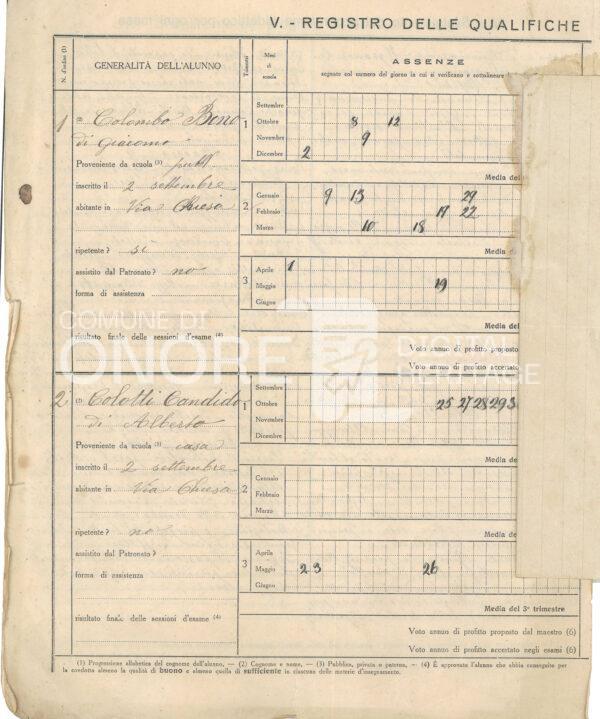 V. - REGISTRO DELLE QUALIFICHE
N. d'ordine (1)
GENERALITÀ DELL'ALUNNO
Trimestri
Mesi di scuola
ASSENZE
segnate col numero del giorno in cui si verificano e sottolineare
1
(2) Colombo Beno
di Giacomo
Proveniente da scuola (3) pubb
inscritto il 2 settembre
abitante in Via Chiesa
ripetente? si
assistito dal Patronato? no
forma di assistenza
risultato finale delle sessioni d'esame (4)
1
Settembre
Ottobre 8 12
Novembre 9
Dicembre 2
Media del
2
Gennaio 9 13 29
Febbraio 17 22
Marzo 10 18
Media d
3
Aprile 1
Maggio 19
Giugno
Media del
Voto annuo di profitto proposto
Voto annuo di profitto accertato
COMUNE DI
ONORE
HERITAGE
2
(2) Colotti Candido
di Alberto
Proveniente da scuola (3) casa
inscritto il 2 settembre
abitante in Via Chiesa
ripetente? no
assistito dal Patronato?
forma di assistenza
risultato finale delle sessioni d'esame (4)
1
Settembre
Ottobre 25 27 28 29 3
Novembre
Dicembre
Media de
2
Gennaio
Febbraio
Marzo
Media de
3
Aprile
Maggio 2 3 26
Giugno
Media del 3° trimestre
Voto annuo di profitto proposto dal maestro (6)
Voto annuo di profitto accertato negli esami (6)
(1) Progressione alfabetica del cognome dell'alunno, — (2) Cognome e nome, — (3) Pubblica, privata o paterna, — (4) È approvato l'alunno che abbia conseguito per
la condotta almeno la qualità di buono e almeno quella di sufficiente in ciascuna delle materie d'insegnamento.